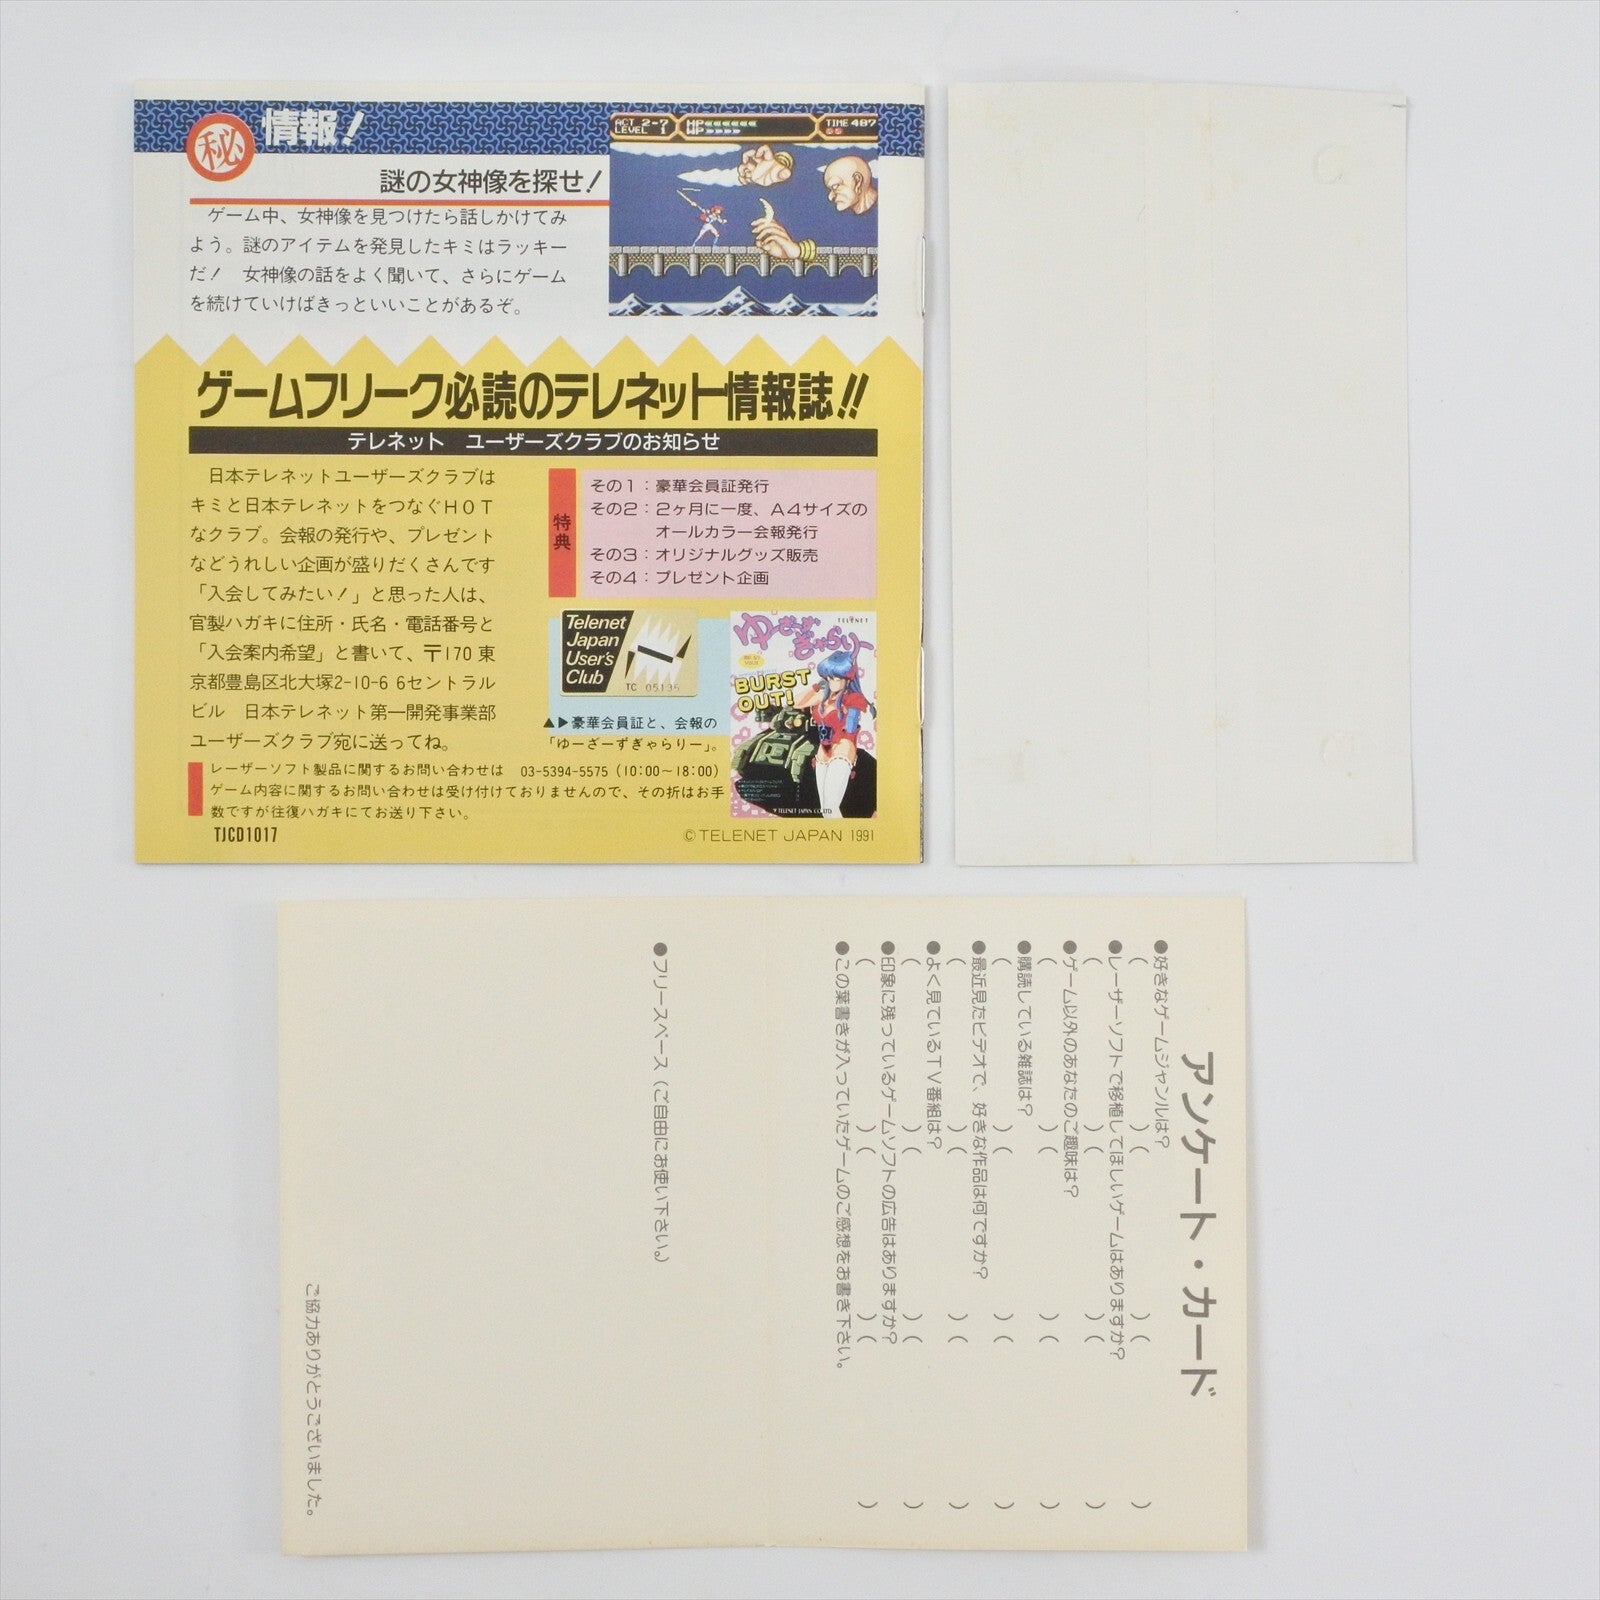 ㊙情報!
謎の女神像を探せ!
ゲーム中、女神像を見つけたら話しかけてみ
よう。謎のアイテムを発見したキミはラッキー
だ! 女神像の話をよく聞いて、さらにゲーム
を続けていけばきっといいことがあるぞ。
ACT 2-7 HP TIME 487
LEVEL 1 WP
ゲームフリーク必読のテレネット情報誌!!
テレネット ユーザーズクラブのお知らせ
日本テレネットユーザーズクラブは
キミと日本テレネットをつなぐHOT
なクラブ。会報の発行や、プレゼント
などうれしい企画が盛りだくさんです
「入会してみたい!」と思った人は、
官製ハガキに住所・氏名・電話番号と
「入会案内希望」と書いて、〒170 東
京都豊島区北大塚2-10-6 6セントラル
ビル 日本テレネット第一開発事業部
ユーザーズクラブ宛に送ってね。
特典
その1:豪華会員証発行
その2:2ヶ月に一度、A4サイズの
オールカラー会報発行
その3:オリジナルグッズ販売
その4:プレゼント企画
Telenet
Japan
User's
Club
TC 05135
▲▶豪華会員証と、会報の
「ゆーざーずぎゃらりー」。
TELENET
ゆーざーず
ぎゃらりー
BURST
OUT!
▼TELENET JAPAN CO.LTD.
レーザーソフト製品に関するお問い合わせは 03-5394-5575 (10:00～18:00)
ゲーム内容に関するお問い合わせは受け付けておりませんので、その折はお手
数ですが往復ハガキにてお送り下さい。
TJCD1017
© TELENET JAPAN 1991
アンケート・カード
●好きなゲームジャンルは?
( )( )( )
●レーザーソフトで移植してほしいゲームはありますか?
( )( )( )
●ゲーム以外のあなたのご趣味は?
( )( )( )
●購読している雑誌は?
( )( )( )
●最近見たビデオで、好きな作品は何ですか?
( )( )( )
●よく見ているTV番組は?
( )( )( )
●印象に残っているゲームソフトの広告はありますか?
( )( )( )
●この葉書きが入っていたゲームのご感想をお書き下さい。
●フリースペース(ご自由にお使い下さい。)
ご協力ありがとうございました。